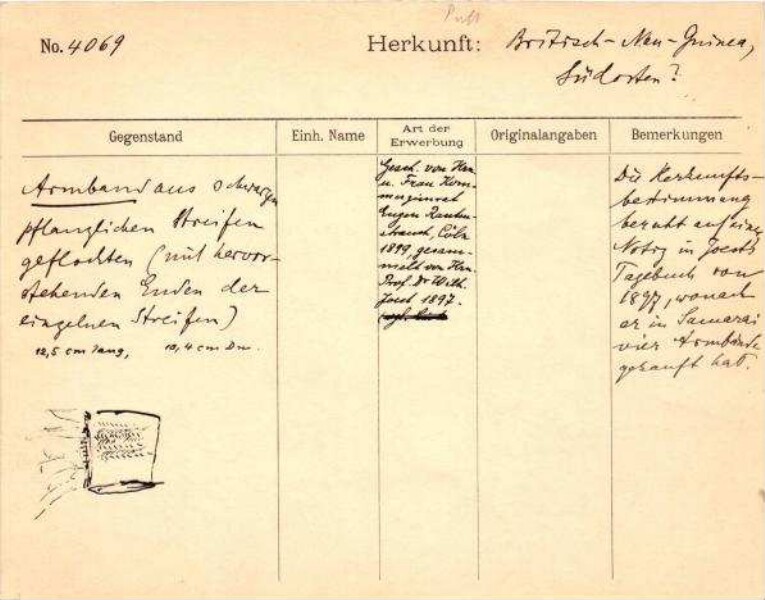 No. 4069
Herkunft: Britisch-Neu-Guinea,
Südosten?
Gegenstand
Einh. Name
Art der
Erwerbung
Originalangaben
Bemerkungen
Armband aus schwarzen
pflanzlichen Streifen
geflochten (mit hervor-
stehenden Enden der
einzelnen Streifen)
12,5 cm lang, 10,4 cm Dm.
Gesch. von Hrn.
u. Frau Kom-
merzienrat
Eugen Rauten-
strauch, Cöln
1899, gesam-
melt von Hrn.
Prof. Dr Wilh.
Joest 1897.
Die Herkunfts-
bestimmung
beruht auf einer
Notiz in Joests
Tagebuch von
1897, wonach
er in Samarai
vier Armbände
gekauft hat.